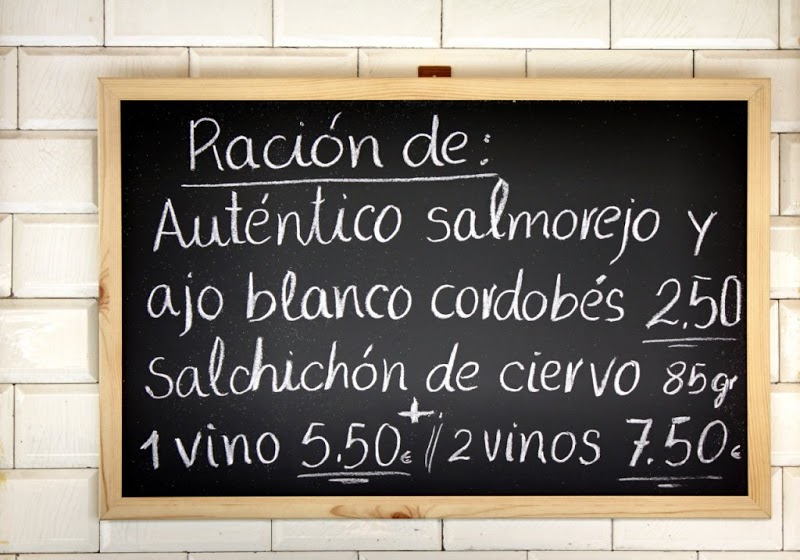 Ración de:
Auténtico salmorejo y
ajo blanco cordobés 2.50
Salchichón de ciervo 85gr
+
1 vino 5.50€ // 2 vinos 7.50€